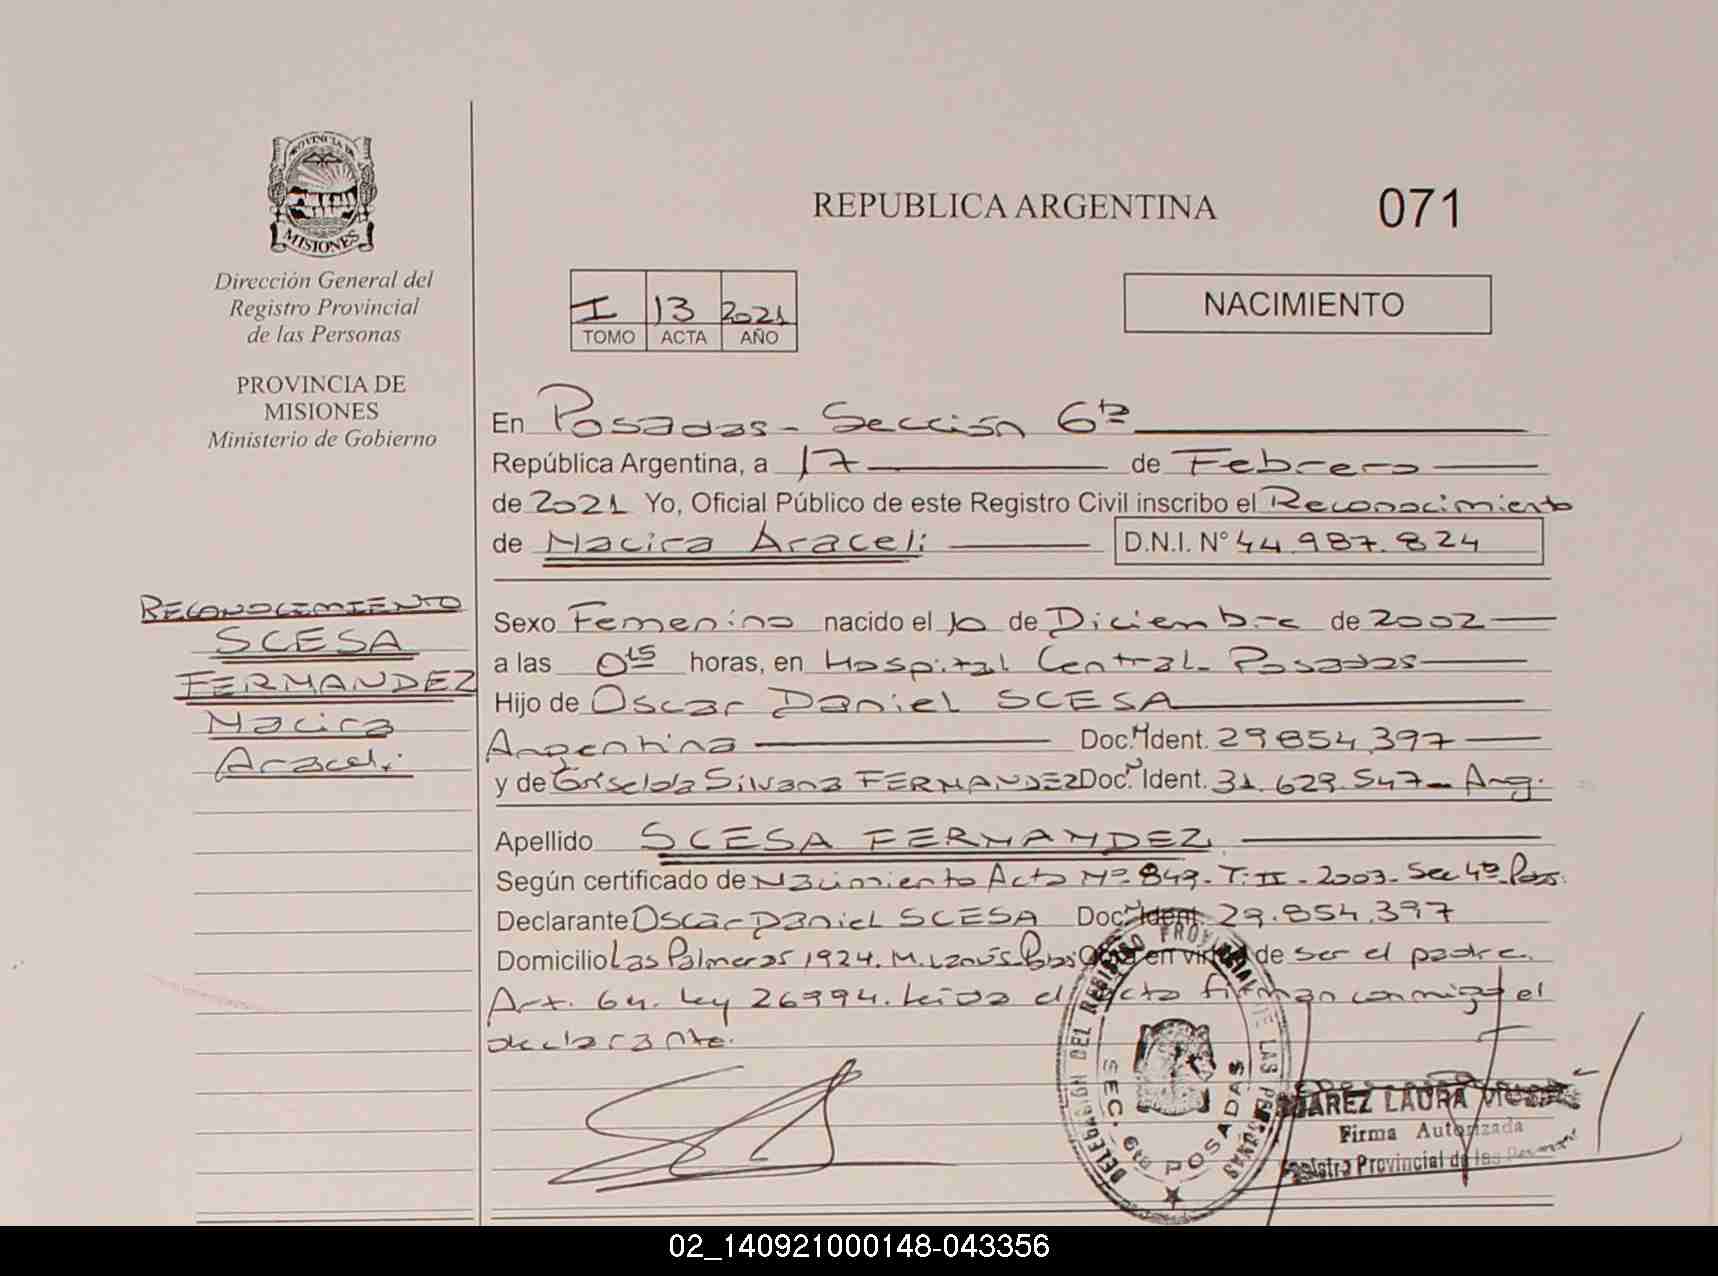 PROVINCIA DE
MISIONES
Dirección General del
Registro Provincial
de las Personas
PROVINCIA DE
MISIONES
Ministerio de Gobierno
RECONOCIMIENTO
SCESA
FERNANDEZ
Nacira
Araceli
REPUBLICA ARGENTINA
071
I 13 2021
TOMO ACTA AÑO
NACIMIENTO
En Posadas - Sección 6ta
República Argentina, a 17 de Febrero
de 2021 Yo, Oficial Público de este Registro Civil inscribo el Reconocimiento
de Nacira Araceli D.N.I. N° 44.987.824
Sexo Femenino nacido el 10 de Diciembre de 2002
a las 0 15 horas, en Hospital Central - Posadas
Hijo de Oscar Daniel SCESA
Argentina Doc. N Ident. 29.854.397
y de Griselda Silvana FERNANDEZ Doc. N Ident. 31.629.547 - Arg.
Apellido SCESA FERNANDEZ
Según certificado de Nacimiento Acta N° 849 - T. II - 2003 - Sec 4ta Pos.
Declarante Oscar Daniel SCESA Doc. N Ident. 29.854.397
Domicilio Las Palmeras 1924. M. Lanús - Pdas Obra en virtud de ser el padre.
Art. 64. Ley 26994. Leida el Acta firman conmigo el
declarante.
DELEGACIÓN DEL REGISTRO PROVINCIAL DE LAS PERSONAS
SEC. 6ta POSADAS
LAURA
Firma Autorizada
Registro Provincial de las Personas
02_140921000148-043356